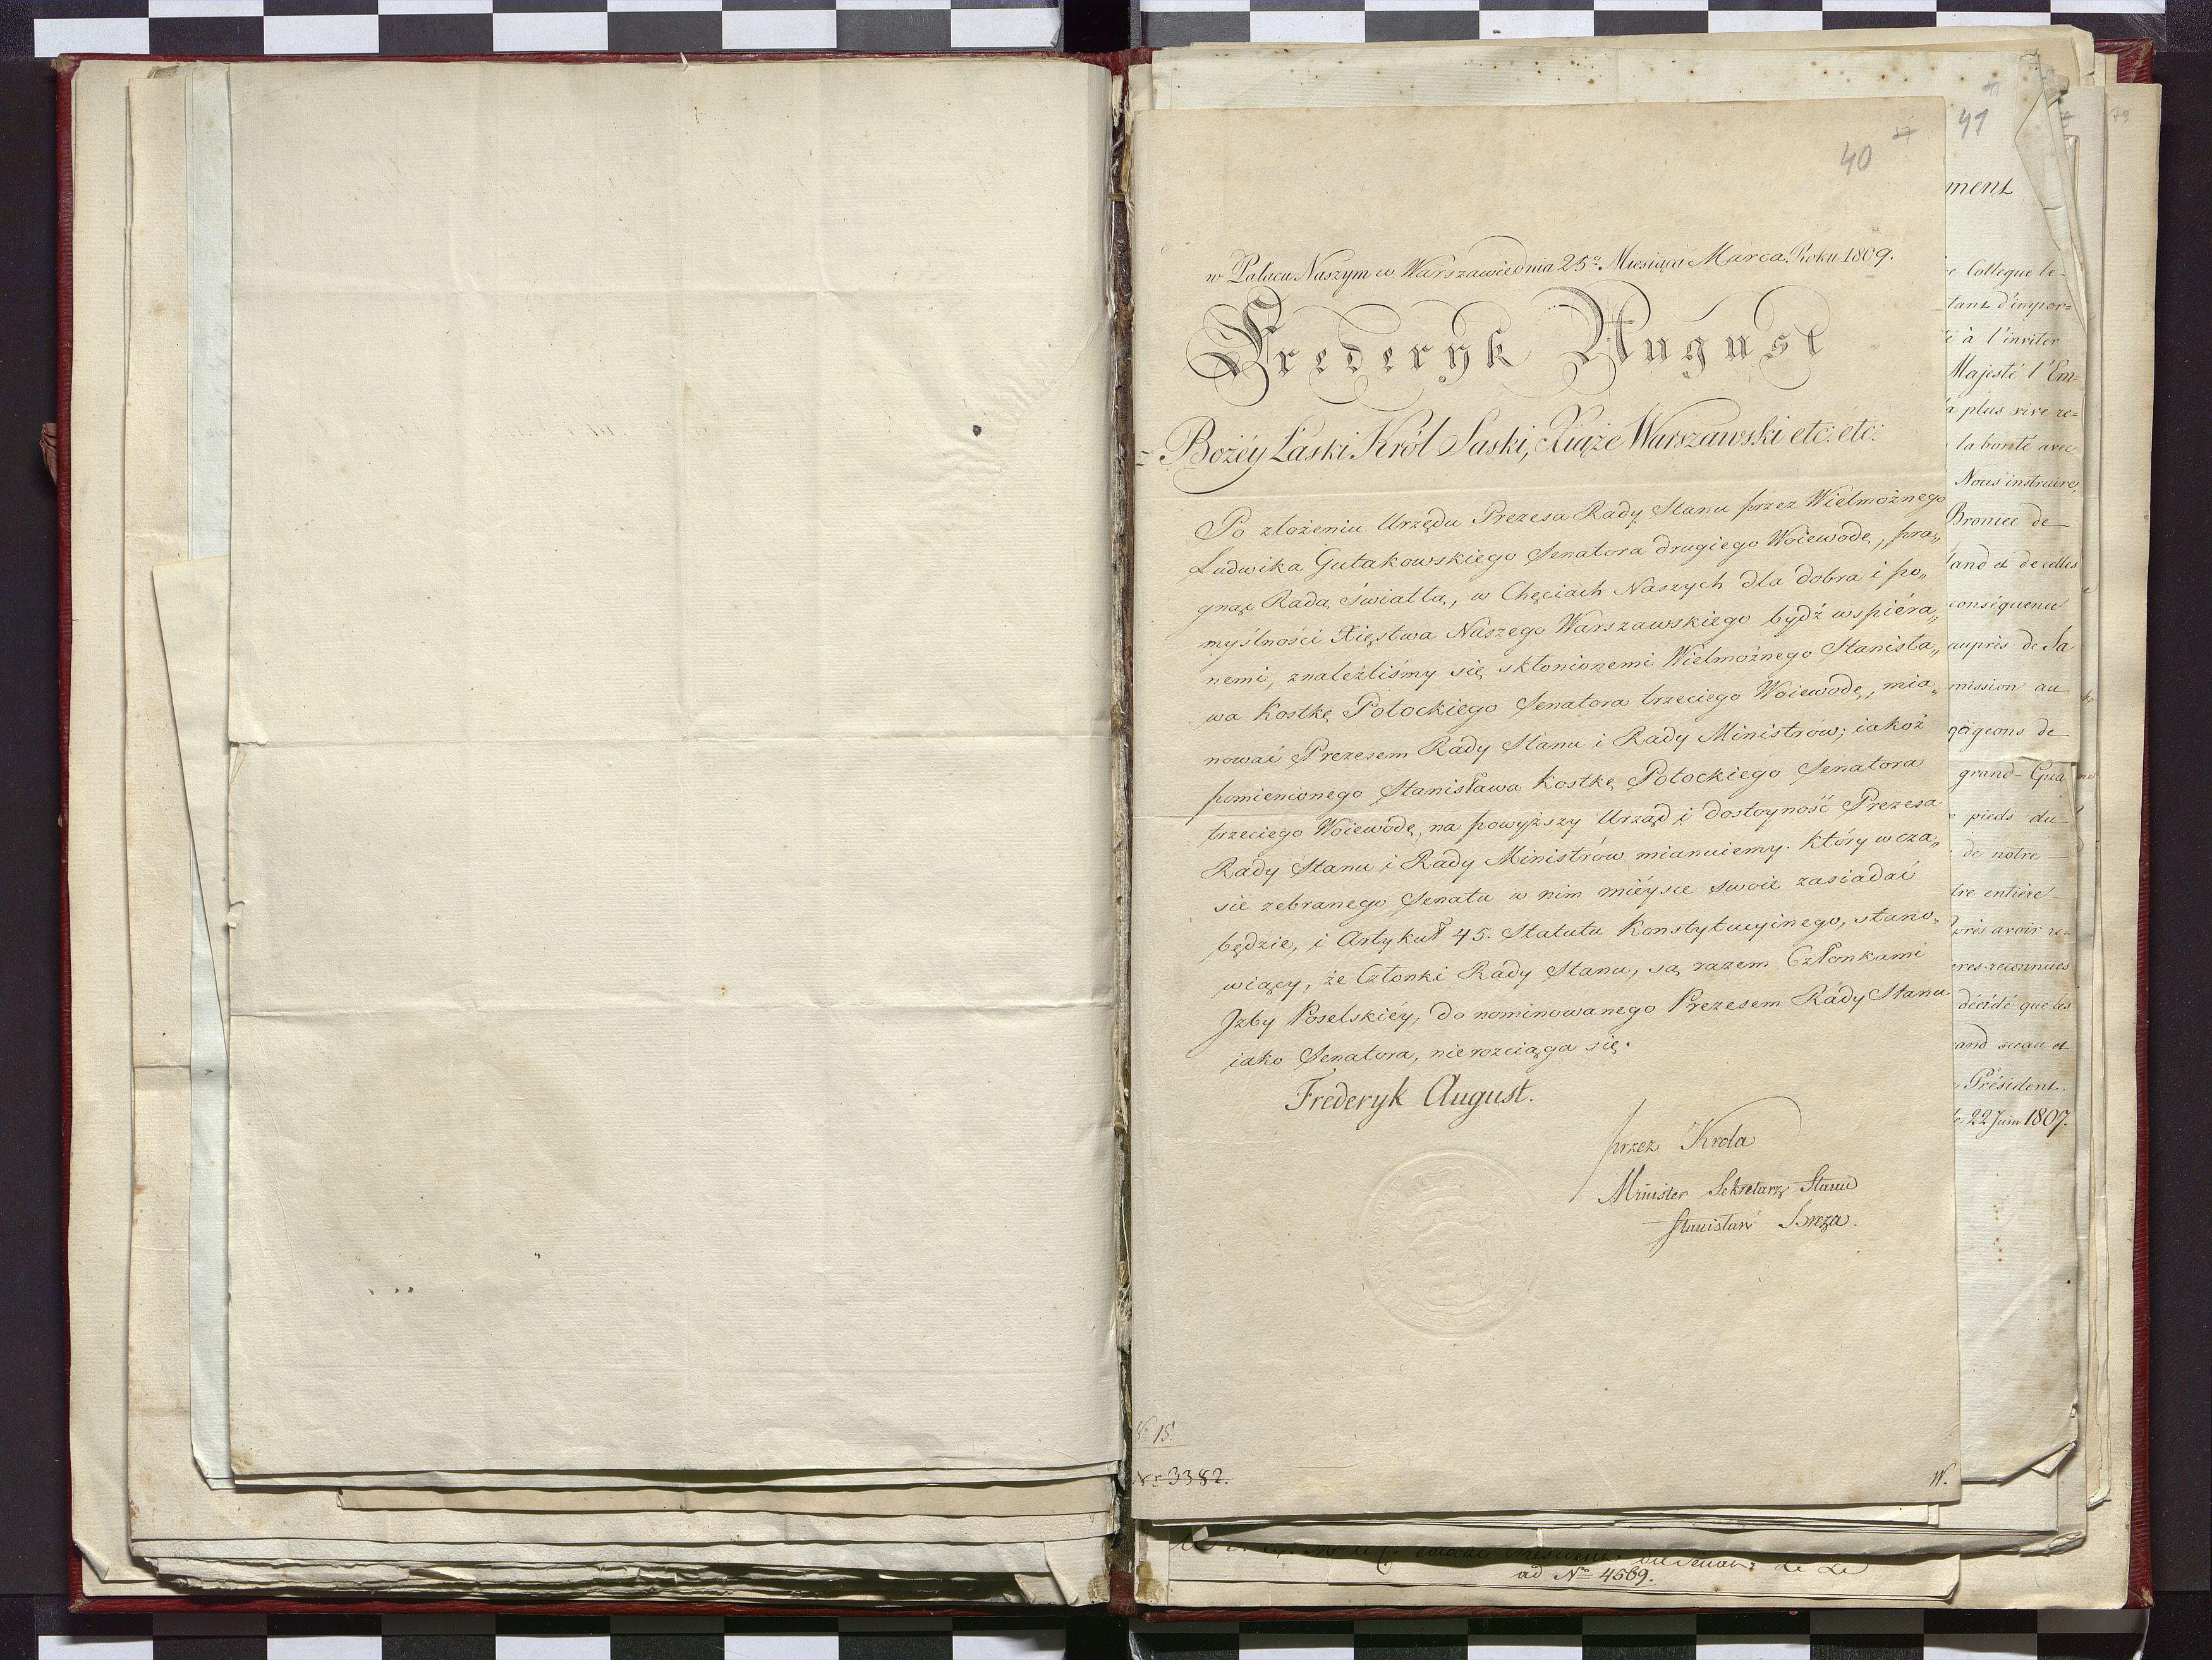 40
41
w Pałacu Naszym w Warszawie dnia 25º Miesiąca Marca Roku 1809.
Frederyk August
z Bożéy Łaski Król Saski, Xiąże Warszawski etc: etc:
Po złożeniu Urzędu Prezesa Rady Stanu przez Wielmożnego
Ludwika Gutakowskiego Senatora drugiego Woiewodę, pra„
gnąc Radą światłą, w Chęciach Naszych dla dobra i po„
myślności Xięstwa Naszego Warszawskiego bydź wspiéra„
nemi, znaleźliśmy się skłonionemi Wielmożnego Stanisła„
wa Kostkę Potockiego Senatora trzeciego Woiewodę, mia„
nować Prezesem Rady Stanu i Rady Ministrów; iakoż
pomienionego Stanisława Kostkę Potockiego Senatora
trzeciego Woiewodę, na powyższy Urząd i dostoyność Prezesa
Rady Stanu i Rady Ministrów mianuiemy. który w cza„
sie zebranego Senatu w nim miéysce swoie zasiadać
będzie, i Artykuł 45. Statutu Konstytucyinego, stano„
wiący, że Członki Rady Stanu, są razem Członkami
Jzby Poselskiéy, do nominowanego Prezesem Rady Stanu
iako Senatora, nierozciąga się.
Frederyk August.
przez Krola
Minister Sekretarz Stanu
Stanisław Breza.
№ 15.
№ 3382.
W.
ment
Collegue le-
tant d'impor=
à l'inviter
Majesté l'Em-
plus vive re=
la bonté avec
Nous instruire,
Broniec de
and et de celles
conséquence
auprès de Sa
mission au
gageons de
grand-Gua
pieds du
de notre
entière
avoir re=
reconnues
décidé que les
sceau et
Président.
22 Juin 1807.
ad № 4569.